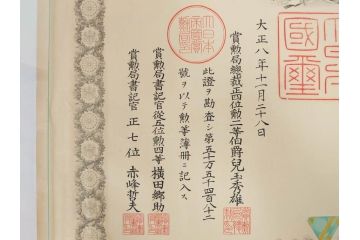 大正八年十一月二十八日
賞勲局總裁正四位勲二等伯爵兒玉秀雄
此證ヲ勘査シ第五十万五千四百八十二
號ヲ以テ勲等簿册ニ記入ス
賞勲局書記官從五位勲四等横田郷助
賞勲局書記官正七位赤峰哲夫